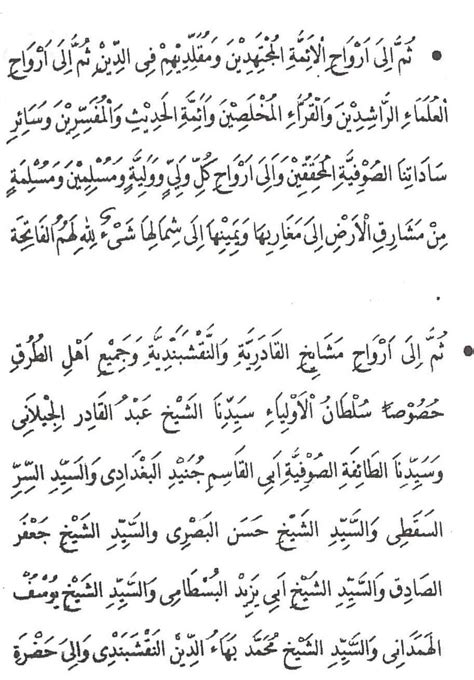 • ثُمَّ اِلَى اَرْوَاحِ الْاَئِمَّةِ الْمُجْتَهِدِيْنَ وَمُقَلِّدِيْهِمْ فِى الدِّيْنِ ثُمَّ اِلَى اَرْوَاحِ
الْعُلَمَاءِ الرَّاشِدِيْنَ وَالْقُرَّاءِ الْمُخْلَصِيْنَ وَاَئِمَّةِ الْحَدِيْثِ وَالْمُفَسِّرِيْنَ وَسَائِرِ
سَادَاتِنَا الصُّوْفِيَّةِ الْمُحَقِّقِيْنَ وَاِلَى اَرْوَاحِ كُلِّ وَلِيٍّ وَوَلِيَّةٍ وَمُسْلِمِيْنَ وَمُسْلِمَةٍ
مِنْ مَشَارِقِ الْاَرْضِ اِلَى مَغَارِبِهَا وَيَمِيْنِهَا اِلَى شِمَالِهَا شَىْءٌ لِلّٰهِ لَهُمُ الْفَاتِحَة
• ثُمَّ اِلَى اَرْوَاحِ مَشَايِخِ القَادَرِيَّةِ وَالنَّقْشَبَنْدِيَّةِ وَجَمِيْعِ اَهْلِ الطُّرُقِ
خُصُوْصًا سُلْطَانُ الْاَوْلِيَاءِ سَيِّدِنَا الشَّيْخِ عَبْدُ القَادِر الْجِيْلَانِى
وَسَيِّدِنَا الطَائِفَةِ الصُّوْفِيَّةِ اَبِى القَاسِمِ جُنَيْدِ البَغْدَادِى وَالسَّيِّدِ السِّرِّ
السَقَطِى وَالسَّيِّدِ الشَّيْخِ حَسَن البَصْرِى وَالسَّيِّدِ الشَّيْخِ جَعْفَر
الصَادِق وَالسَّيِّدِ الشَّيْخِ اَبِى يَزِيْد البُسْطَامِى وَالسَّيِّدِ الشَّيْخِ يُوْسُفْ
الهَمَدَانِى وَالسَّيِّدِ الشَّيْخِ مُحَمَّد بَهَاءُ الدِّيْنِ النَقْشَبَنْدِى وَاِلَى حَضْرَةِ